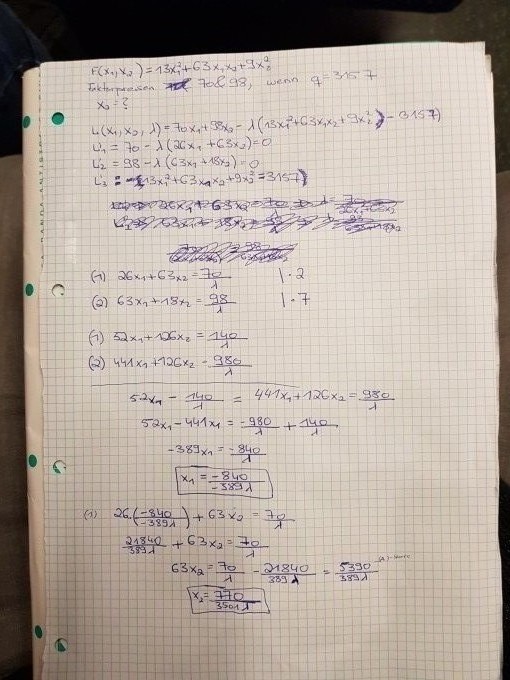 F(x₁,x₂) = 13x₁² + 63x₁x₂ + 9x₂²
Faktorpreisen 70 & 98, wenn q = 3157
x₂ = ?
L(x₁,x₂,λ) = 70x₁ + 98x₂ - λ(13x₁² + 63x₁x₂ + 9x₂²) - 3157)
L'₁ = 70 - λ(26x₁ + 63x₂) = 0
L'₂ = 98 - λ(63x₁ + 18x₂) = 0
L'₃ = -(13x₁² + 63x₁x₂ + 9x₂² = 3157)
(1) 26x₁ + 63x₂ = 70/λ | · 2
(2) 63x₁ + 18x₂ = 98/λ | · 7
(1) 52x₁ + 126x₂ = 140/λ
(2) 441x₁ + 126x₂ - 980/λ
52x₁ - 140/λ = 441x₁ + 126x₂ = 980/λ
52x₁ - 441x₁ = -980/λ + 140/λ
-389x₁ = -840/λ
x₁ = -840/-389λ
(1) 26·(-840/-389λ) + 63x₂ = 70/λ
21840/389λ + 63x₂ = 70/λ
63x₂ = 70/λ - 21840/389λ = 5390/389λ
x₂ = 770/3501λ